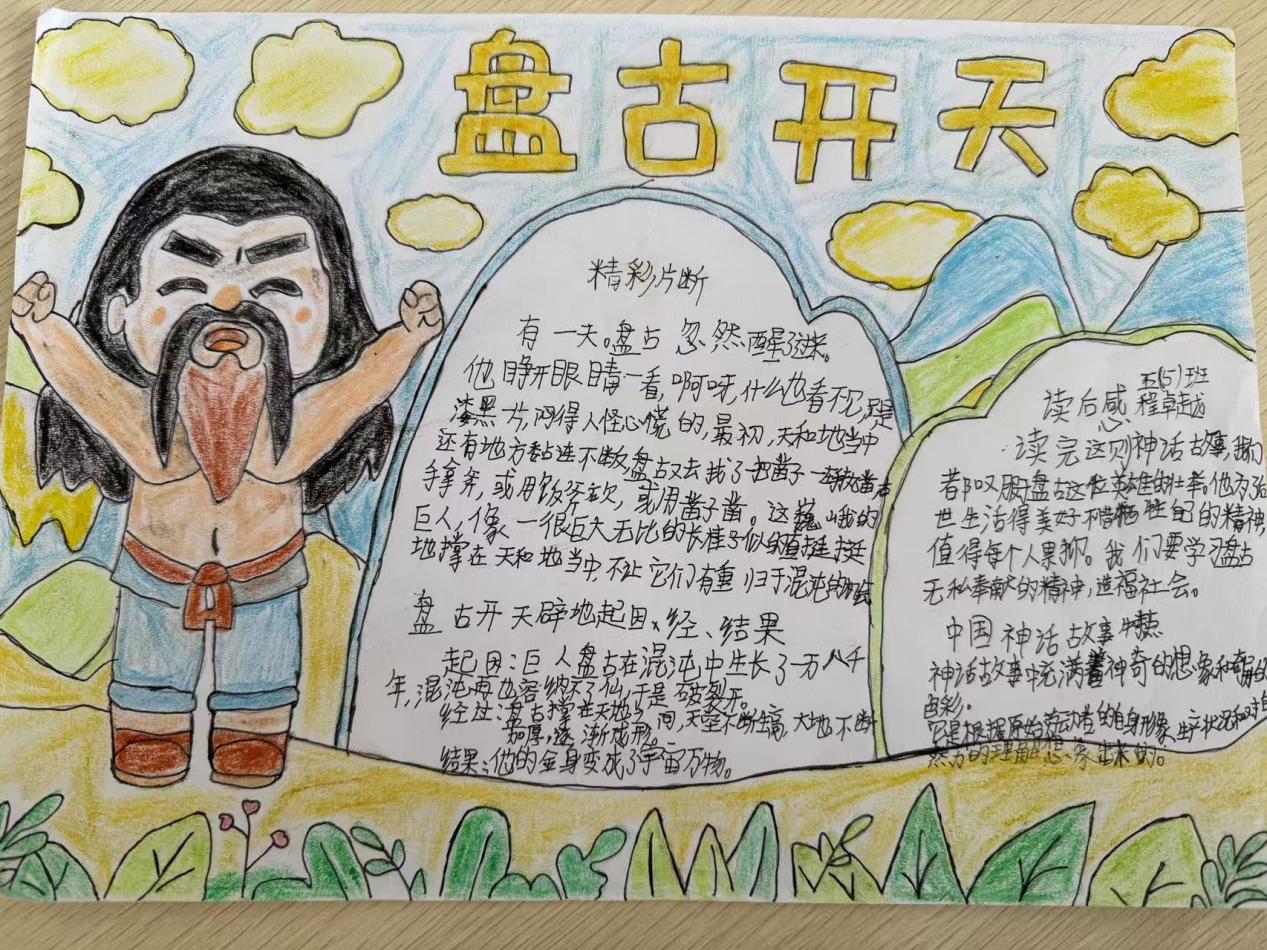 盘古开天
精彩片断
有一天。盘古忽然醒了过来。
他睁开眼睛一看,啊呀,什么也看不见,只是
漆黑一片,闷得人怪心慌的,最初,天和地当中
还有地方黏连不断,盘古又去找了把凿子一
手拿斧,或用斧砍,或用凿子凿。这巍峨的
巨人,像一根巨大无比的长柱子似的直挺挺
地撑在天和地当中,不让它们有重归于混沌的机会
盘古开天辟地起因、经、结果
起因:巨人盘古在混沌中生长了一万八千
年,混沌再也容纳不了他,于是破裂开。
经过:盘古撑在天地之间,天空不断生高,大地不断
加厚,逐渐成形。
结果:他的全身变成了宇宙万物。
读后感
五(5)班
程卓越
读完这则神话故事,我们
都叹服盘古这位英雄的壮举,他为了给
世生活得美好不惜牺牲自己的精神,
值得每个人景仰。我们要学习盘古
无私奉献的精神,造福社会。
中国神话故事特点
神话故事中充满着神奇的想象和奇异的
色彩。
它是根据原始劳动者的自身形象、生产状况和对自
然力的理解想象出来的。